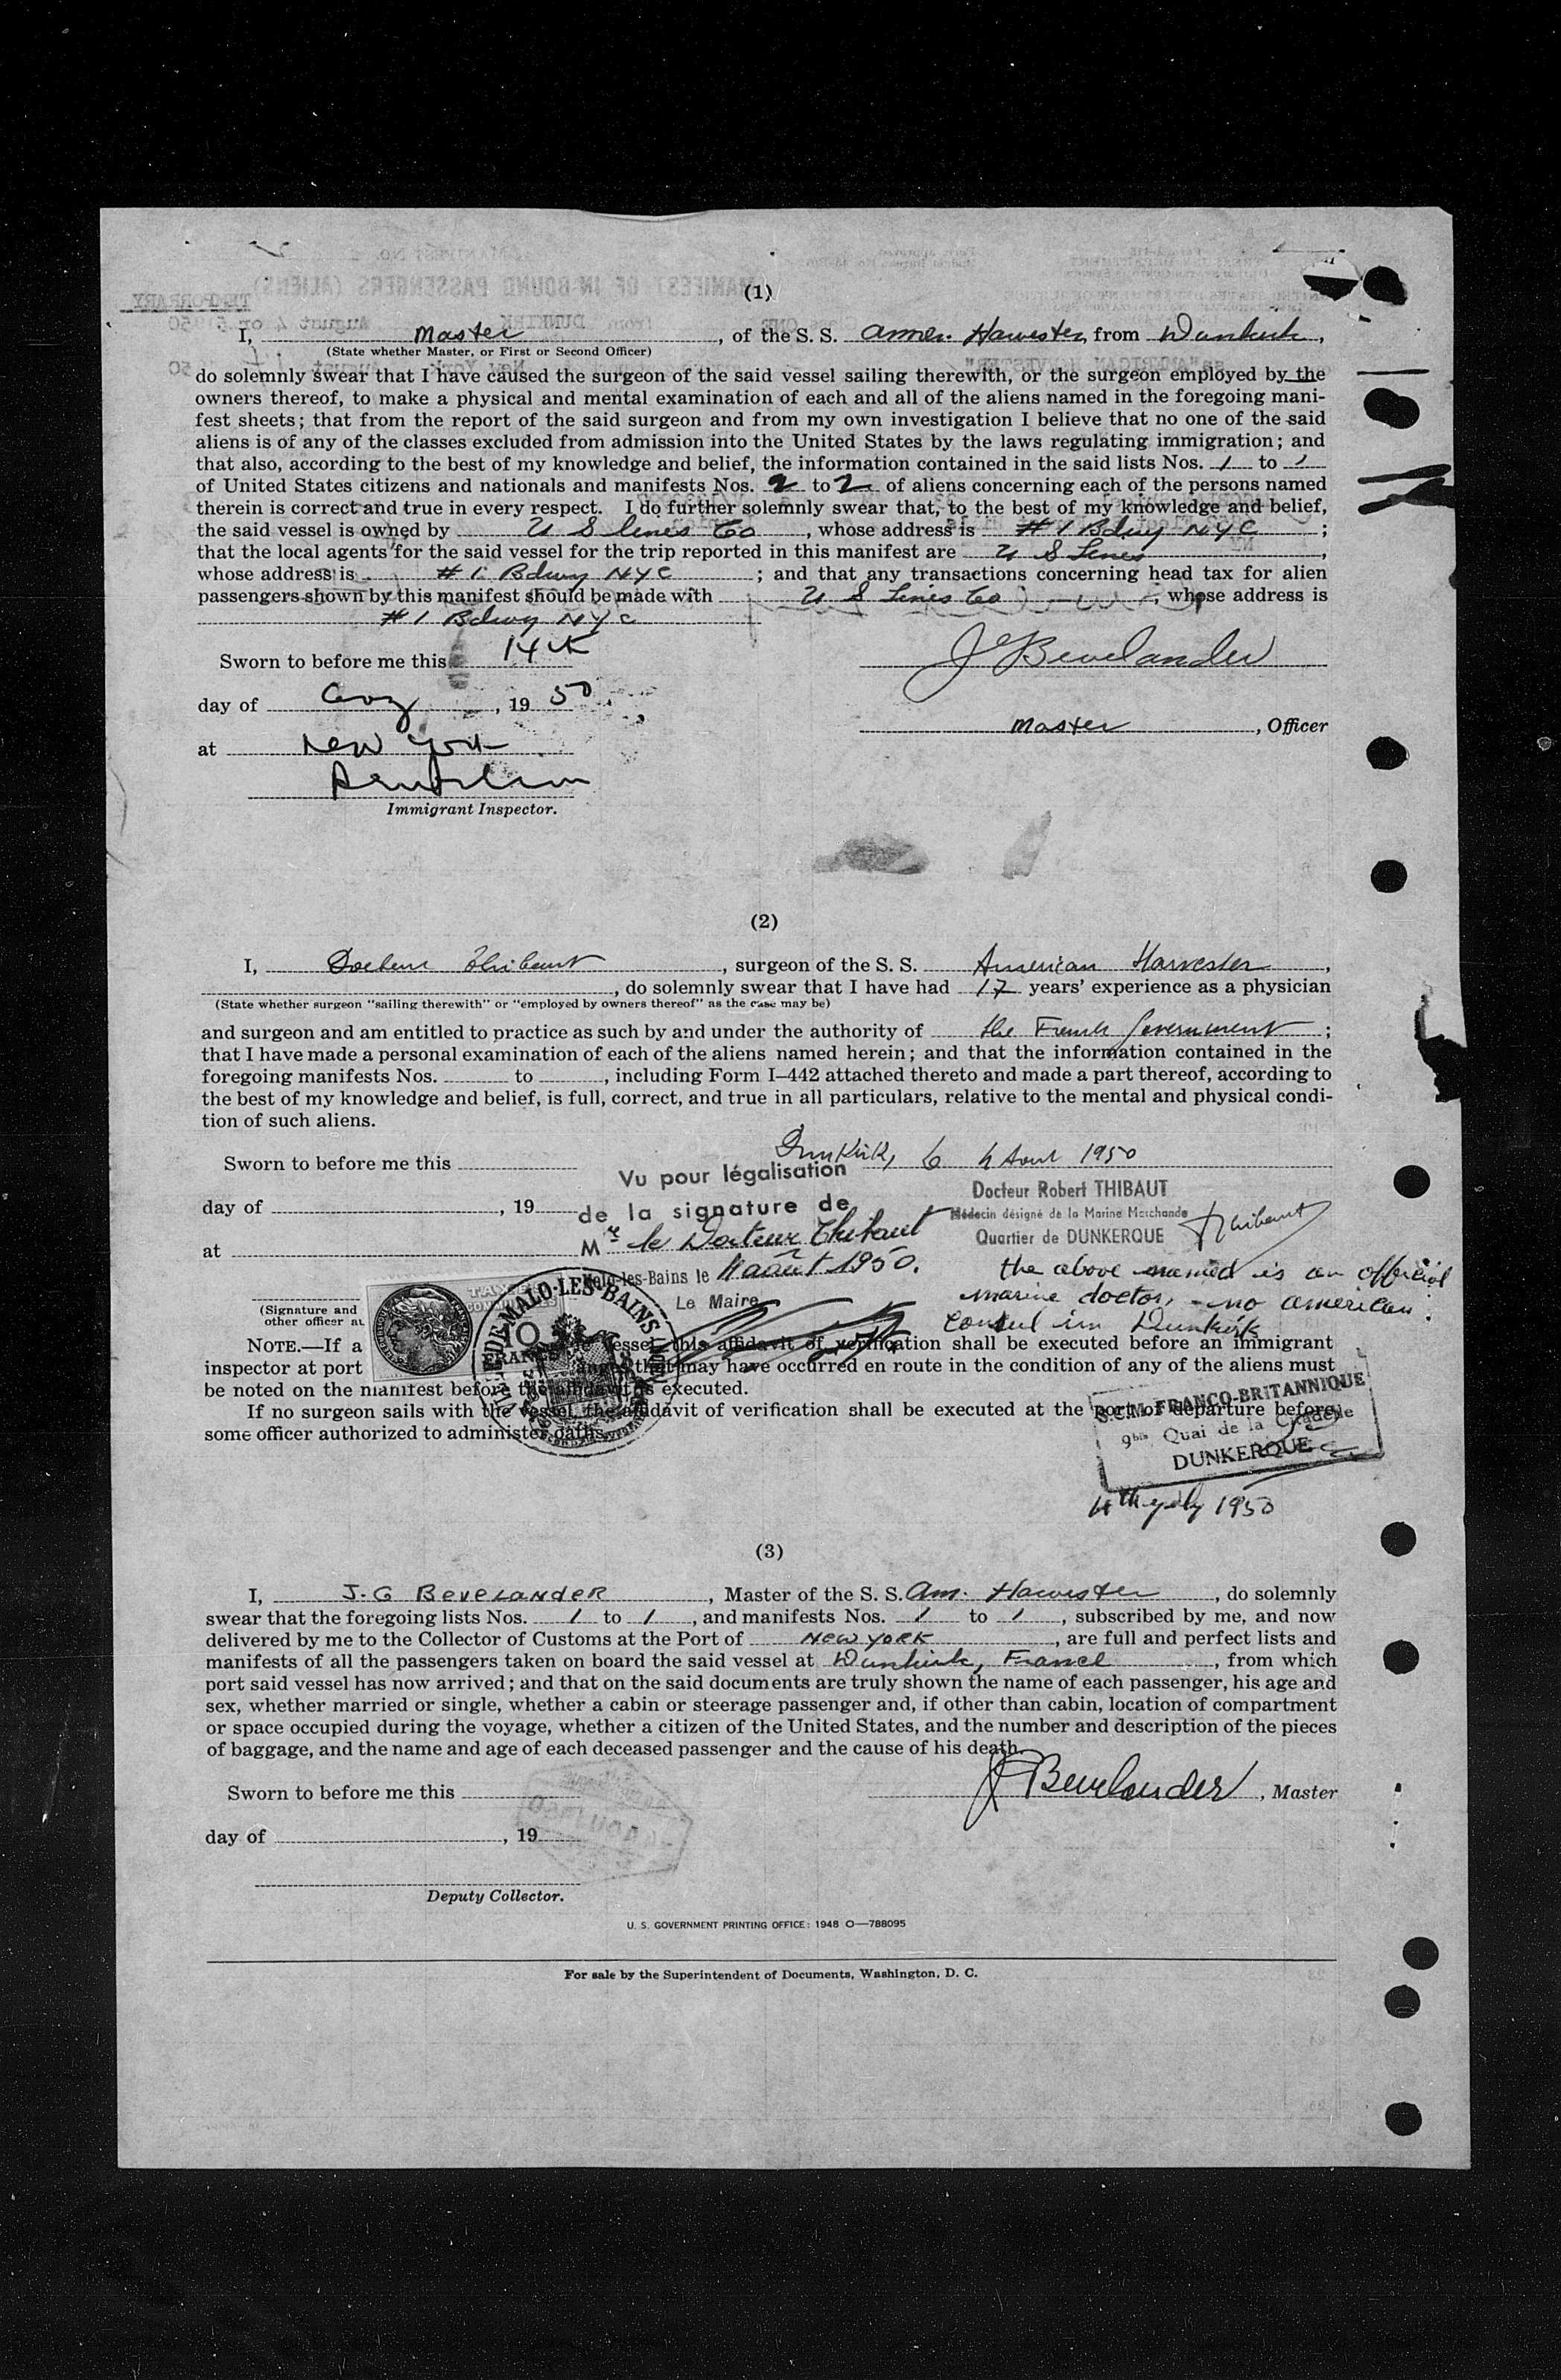 (1)
I, Master, of the S. S. Amer. Harvester, from Dunkirk,
(State whether Master, or First or Second Officer)
do solemnly swear that I have caused the surgeon of the said vessel sailing therewith, or the surgeon employed by the
owners thereof, to make a physical and mental examination of each and all of the aliens named in the foregoing mani-
fest sheets; that from the report of the said surgeon and from my own investigation I believe that no one of the said
aliens is of any of the classes excluded from admission into the United States by the laws regulating immigration; and
that also, according to the best of my knowledge and belief, the information contained in the said lists Nos. 1 to 1
of United States citizens and nationals and manifests Nos. 2 to 2 of aliens concerning each of the persons named
therein is correct and true in every respect. I do further solemnly swear that, to the best of my knowledge and belief,
the said vessel is owned by U S Lines Co, whose address is #1 Bdwy NYC;
that the local agents for the said vessel for the trip reported in this manifest are U S Lines,
whose address is #1 Bdwy NYC; and that any transactions concerning head tax for alien
passengers shown by this manifest should be made with U S Lines Co, whose address is
#1 Bdwy NYC
Sworn to before me this 14th
J Bevelander
day of Aug, 19 50.
Master, Officer
at New York
Immigrant Inspector.
(2)
I, Docteur Thibaut, surgeon of the S. S. American Harvester,
, do solemnly swear that I have had 17 years' experience as a physician
(State whether surgeon "sailing therewith" or "employed by owners thereof" as the case may be)
and surgeon and am entitled to practice as such by and under the authority of the French Government;
that I have made a personal examination of each of the aliens named herein; and that the information contained in the
foregoing manifests Nos. to , including Form I–442 attached thereto and made a part thereof, according to
the best of my knowledge and belief, is full, correct, and true in all particulars, relative to the mental and physical condi-
tion of such aliens.
Dunkirk, le 4 Aout 1950
Sworn to before me this
Vu pour légalisation
Docteur Robert THIBAUT
day of , 19
de la signature de
Médecin désigné de la Marine Marchande
Quartier de DUNKERQUE
Thibaut
at
Mr le Docteur Thibaut
Malo-les-Bains le 4 août 1950.
the above named is an official
Le Maire
marine doctor, - no american
consul in Dunkirk
DE MALO-LES-BAINS
10
FRANCS
(Signature and
other officer au
NOTE.—If a vessel, this affidavit of verification shall be executed before an immigrant
inspector at port that may have occurred en route in the condition of any of the aliens must
be noted on the manifest before the affidavit is executed.
If no surgeon sails with the vessel, the affidavit of verification shall be executed at the port of departure before
some officer authorized to administer oaths.
S.C.M. FRANCO-BRITANNIQUE
9bis Quai de la Citadelle
DUNKERQUE
4th 1950
(3)
I, J. G BEVELANDER, Master of the S. S. Am. Harvester, do solemnly
swear that the foregoing lists Nos. 1 to 1, and manifests Nos. 1 to 1, subscribed by me, and now
delivered by me to the Collector of Customs at the Port of NEW YORK, are full and perfect lists and
manifests of all the passengers taken on board the said vessel at Dunkirk, France, from which
port said vessel has now arrived; and that on the said documents are truly shown the name of each passenger, his age and
sex, whether married or single, whether a cabin or steerage passenger and, if other than cabin, location of compartment
or space occupied during the voyage, whether a citizen of the United States, and the number and description of the pieces
of baggage, and the name and age of each deceased passenger and the cause of his death.
Sworn to before me this
J Bevelander, Master
day of , 19
Deputy Collector.
U. S. GOVERNMENT PRINTING OFFICE: 1948 O—788095
For sale by the Superintendent of Documents, Washington, D. C.